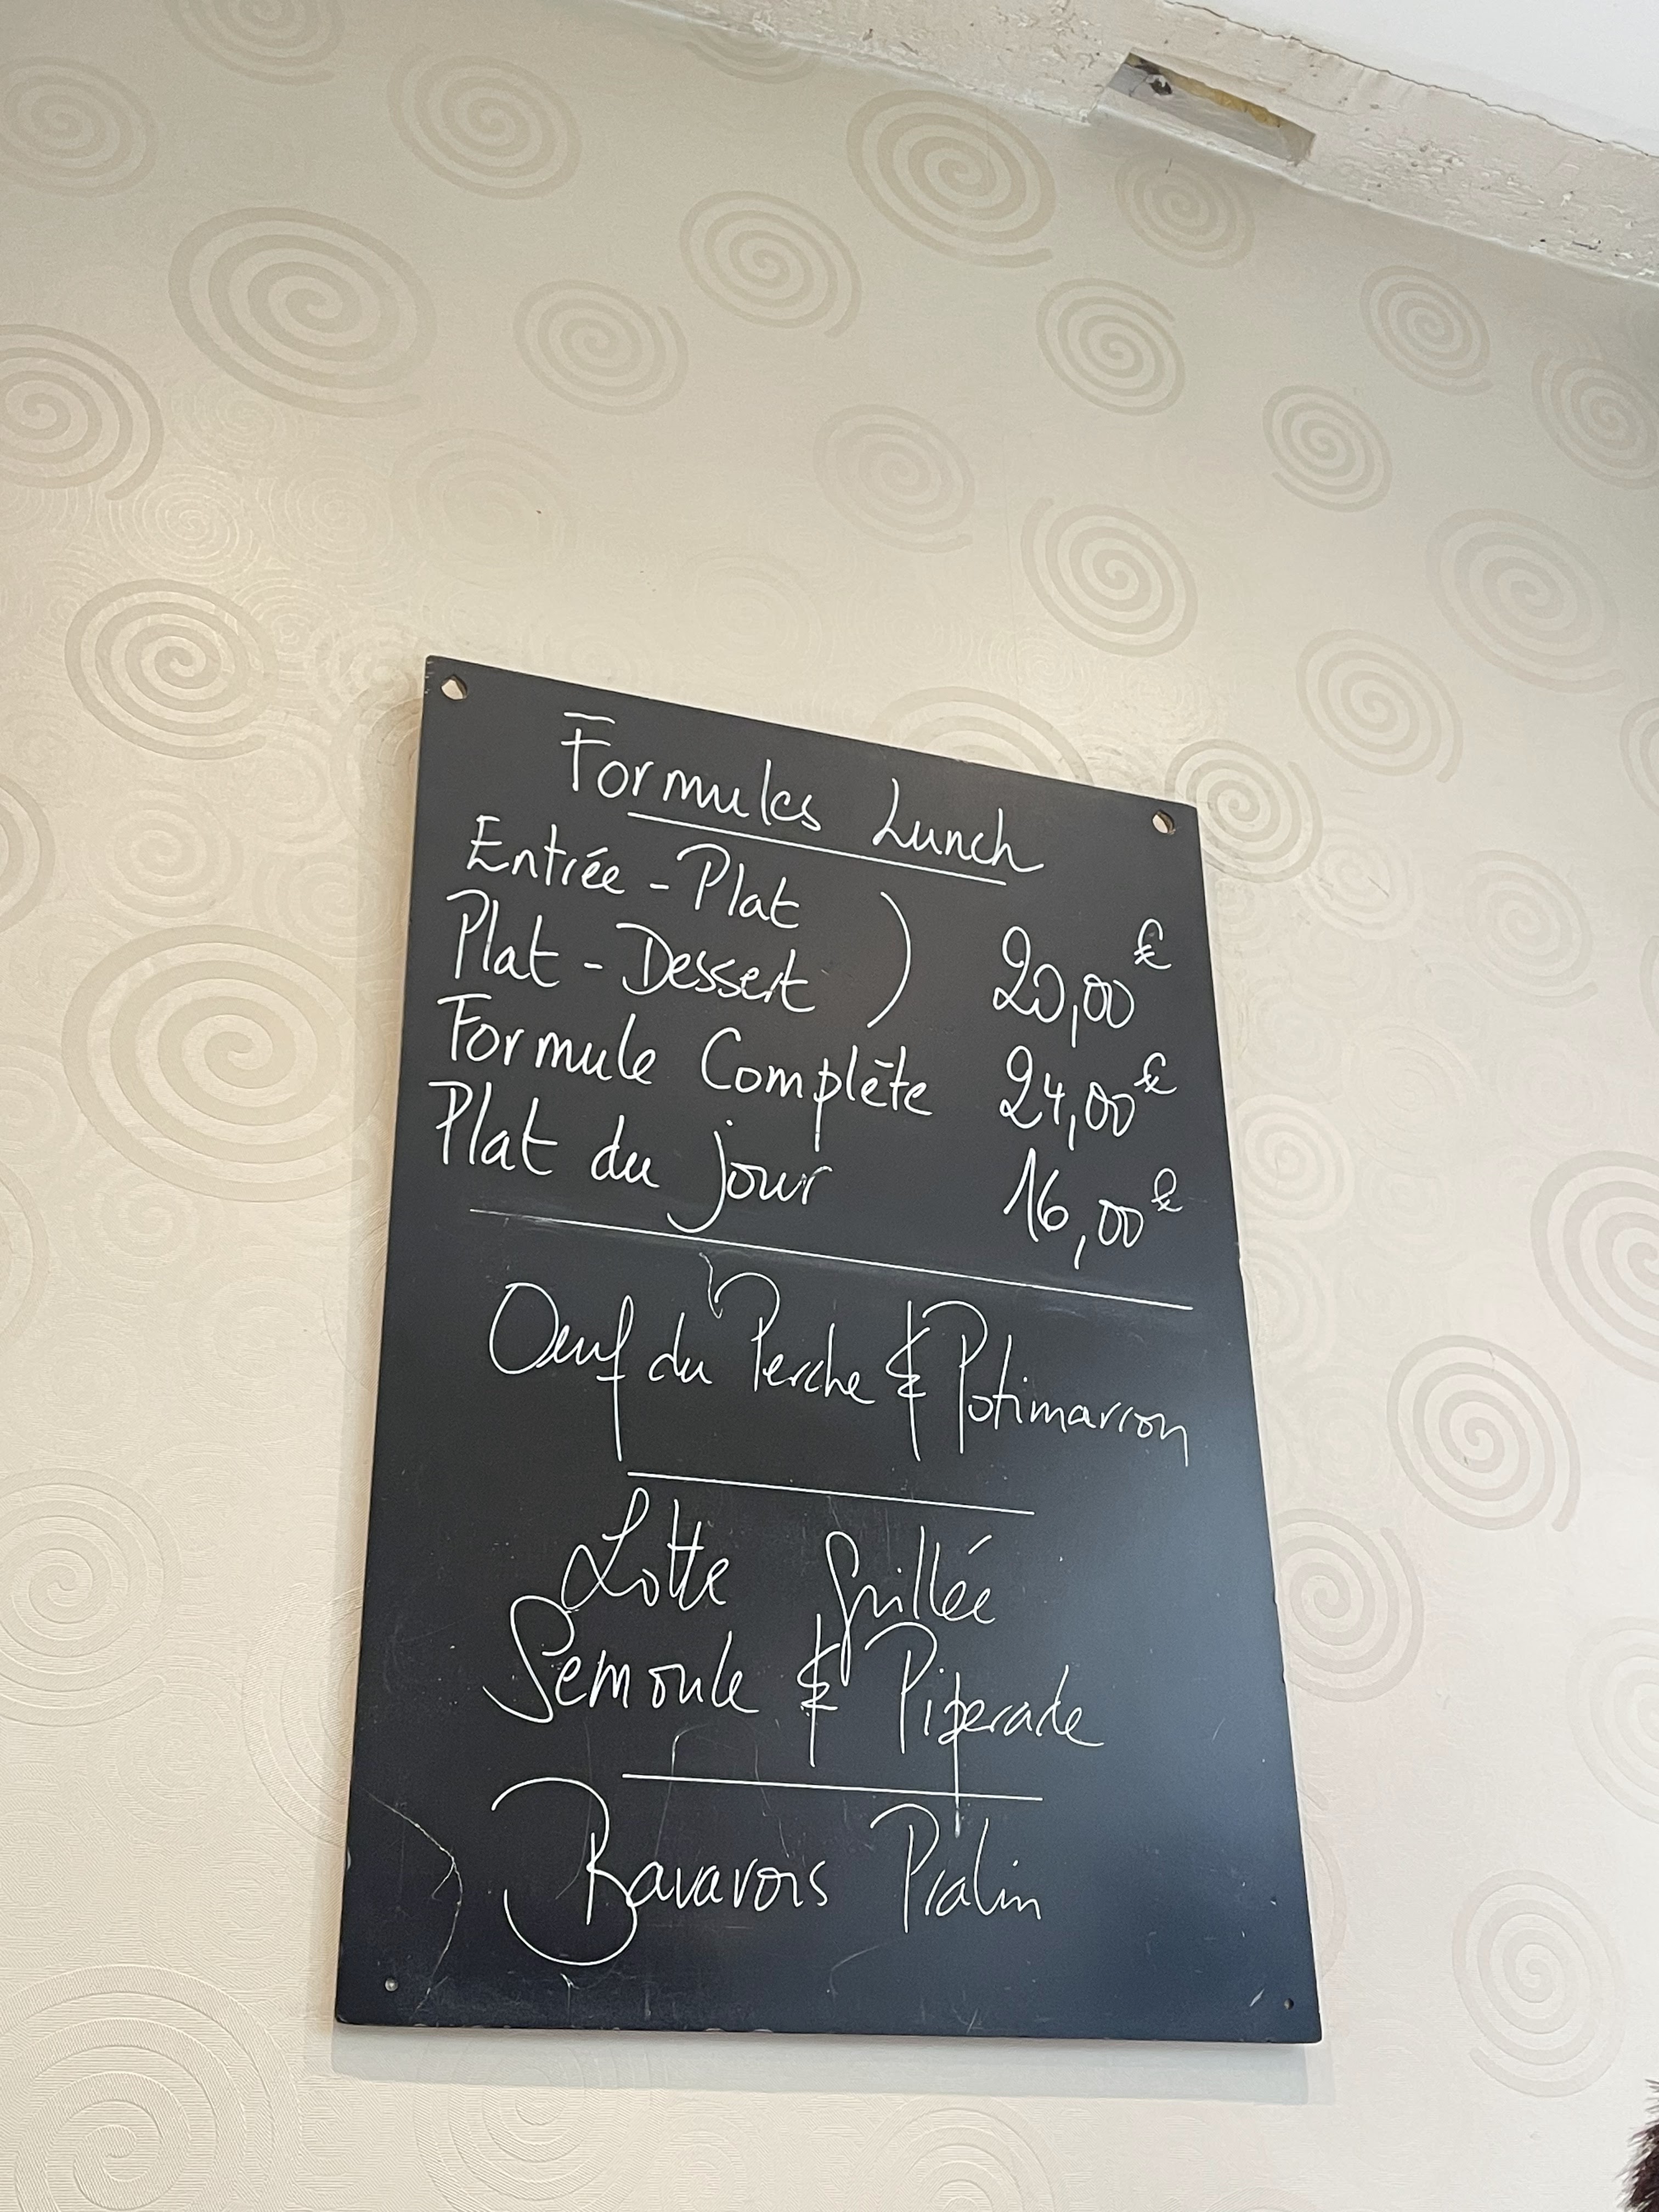 Formules Lunch
Entrée - Plat
Plat - Dessert ) 20,00€
Formule Complète 24,00€
Plat du jour 16,00€
Oeuf du Perche & Potimarron
Lotte Grillée
Semoule & Piperade
Bavarois Pralin